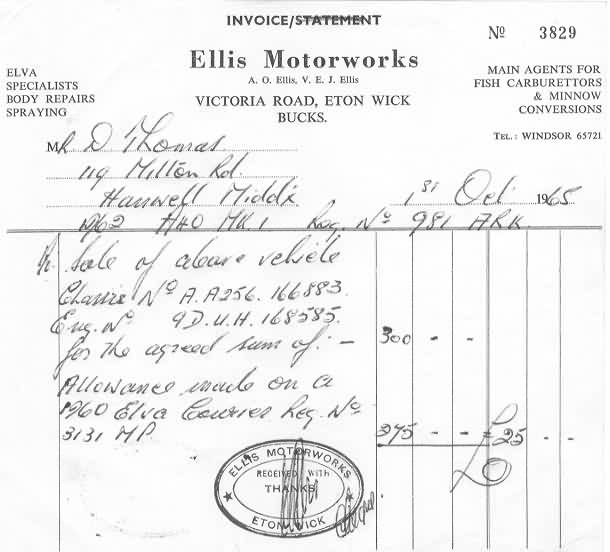 INVOICE/STATEMENT
Nº 3829
Ellis Motorworks
A. O. Ellis, V. E. J. Ellis
VICTORIA ROAD, ETON WICK
BUCKS.
ELVA
SPECIALISTS
BODY REPAIRS
SPRAYING
MAIN AGENTS FOR
FISH CARBURETTORS
& MINNOW
CONVERSIONS
TEL.: WINDSOR 65721
MR D Thomas
119 Milton Rd.
Hanwell Middx 1st Oct 1965
1962 A40 MK1 Reg. Nº 981 ARK.
sale of above vehicle
Chassis Nº A.A2S6. 166883.
Eng. Nº 9D.U.H. 168585.
for the agreed sum of:- 300 - -
Allowance made on a
1960 Elva Courier Reg. Nº
3131 MP 275 - - = £25 - -
ELLIS MOTORWORKS
RECEIVED WITH
THANKS
ETON WICK